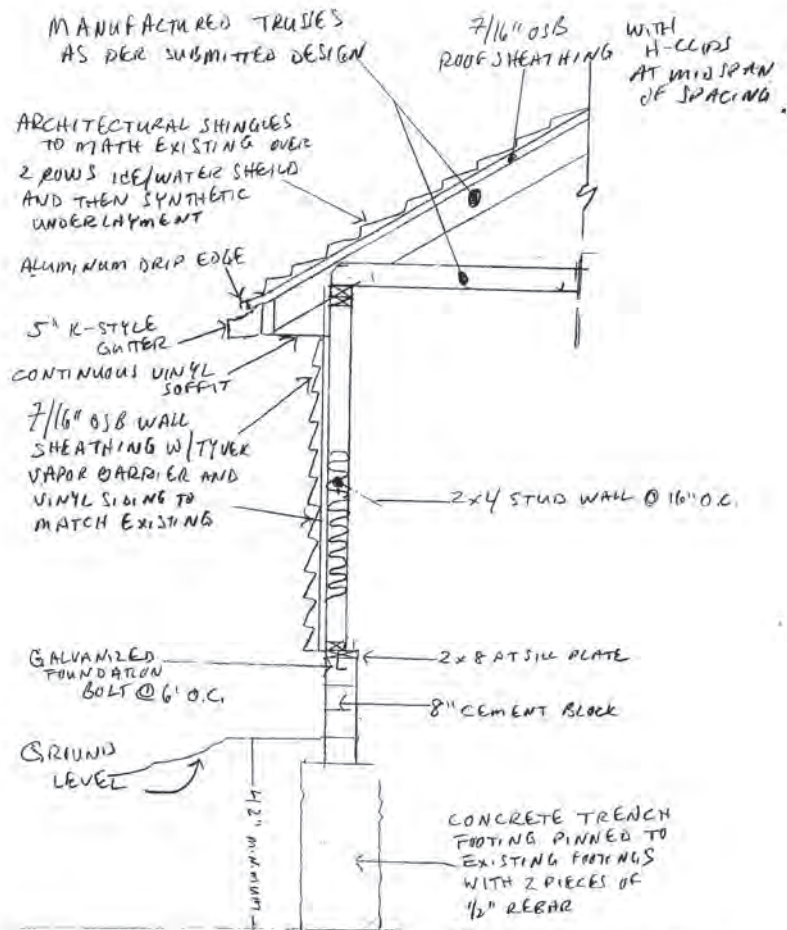 MANUFACTURED TRUSSES
AS PER SUBMITTED DESIGN
7/16" OSB
ROOF SHEATHING
WITH
H-CLIPS
AT MIDSPAN
OF SPACING.
ARCHITECTURAL SHINGLES
TO MATH EXISTING OVER
2 ROWS ICE/WATER SHEILD
AND THEN SYNTHETIC
UNDERLAYMENT
ALUMINUM DRIP EDGE
5" K-STYLE
GUTTER
CONTINUOUS VINYL
SOFFIT
7/16" OSB WALL
SHEATHING W/TYVEK
VAPOR BARRIER AND
VINYL SIDING TO
MATCH EXISTING
2x4 STUD WALL @ 16" O.C.
GALVANIZED
FOUNDATION
BOLT @ 6' O.C.
2x8 PT SILL PLATE
8" CEMENT BLOCK
GROUND
LEVEL
42" MINIMUM
CONCRETE TRENCH
FOOTING PINNED TO
EXISTING FOOTINGS
WITH 2 PIECES OF
1/2" REBAR